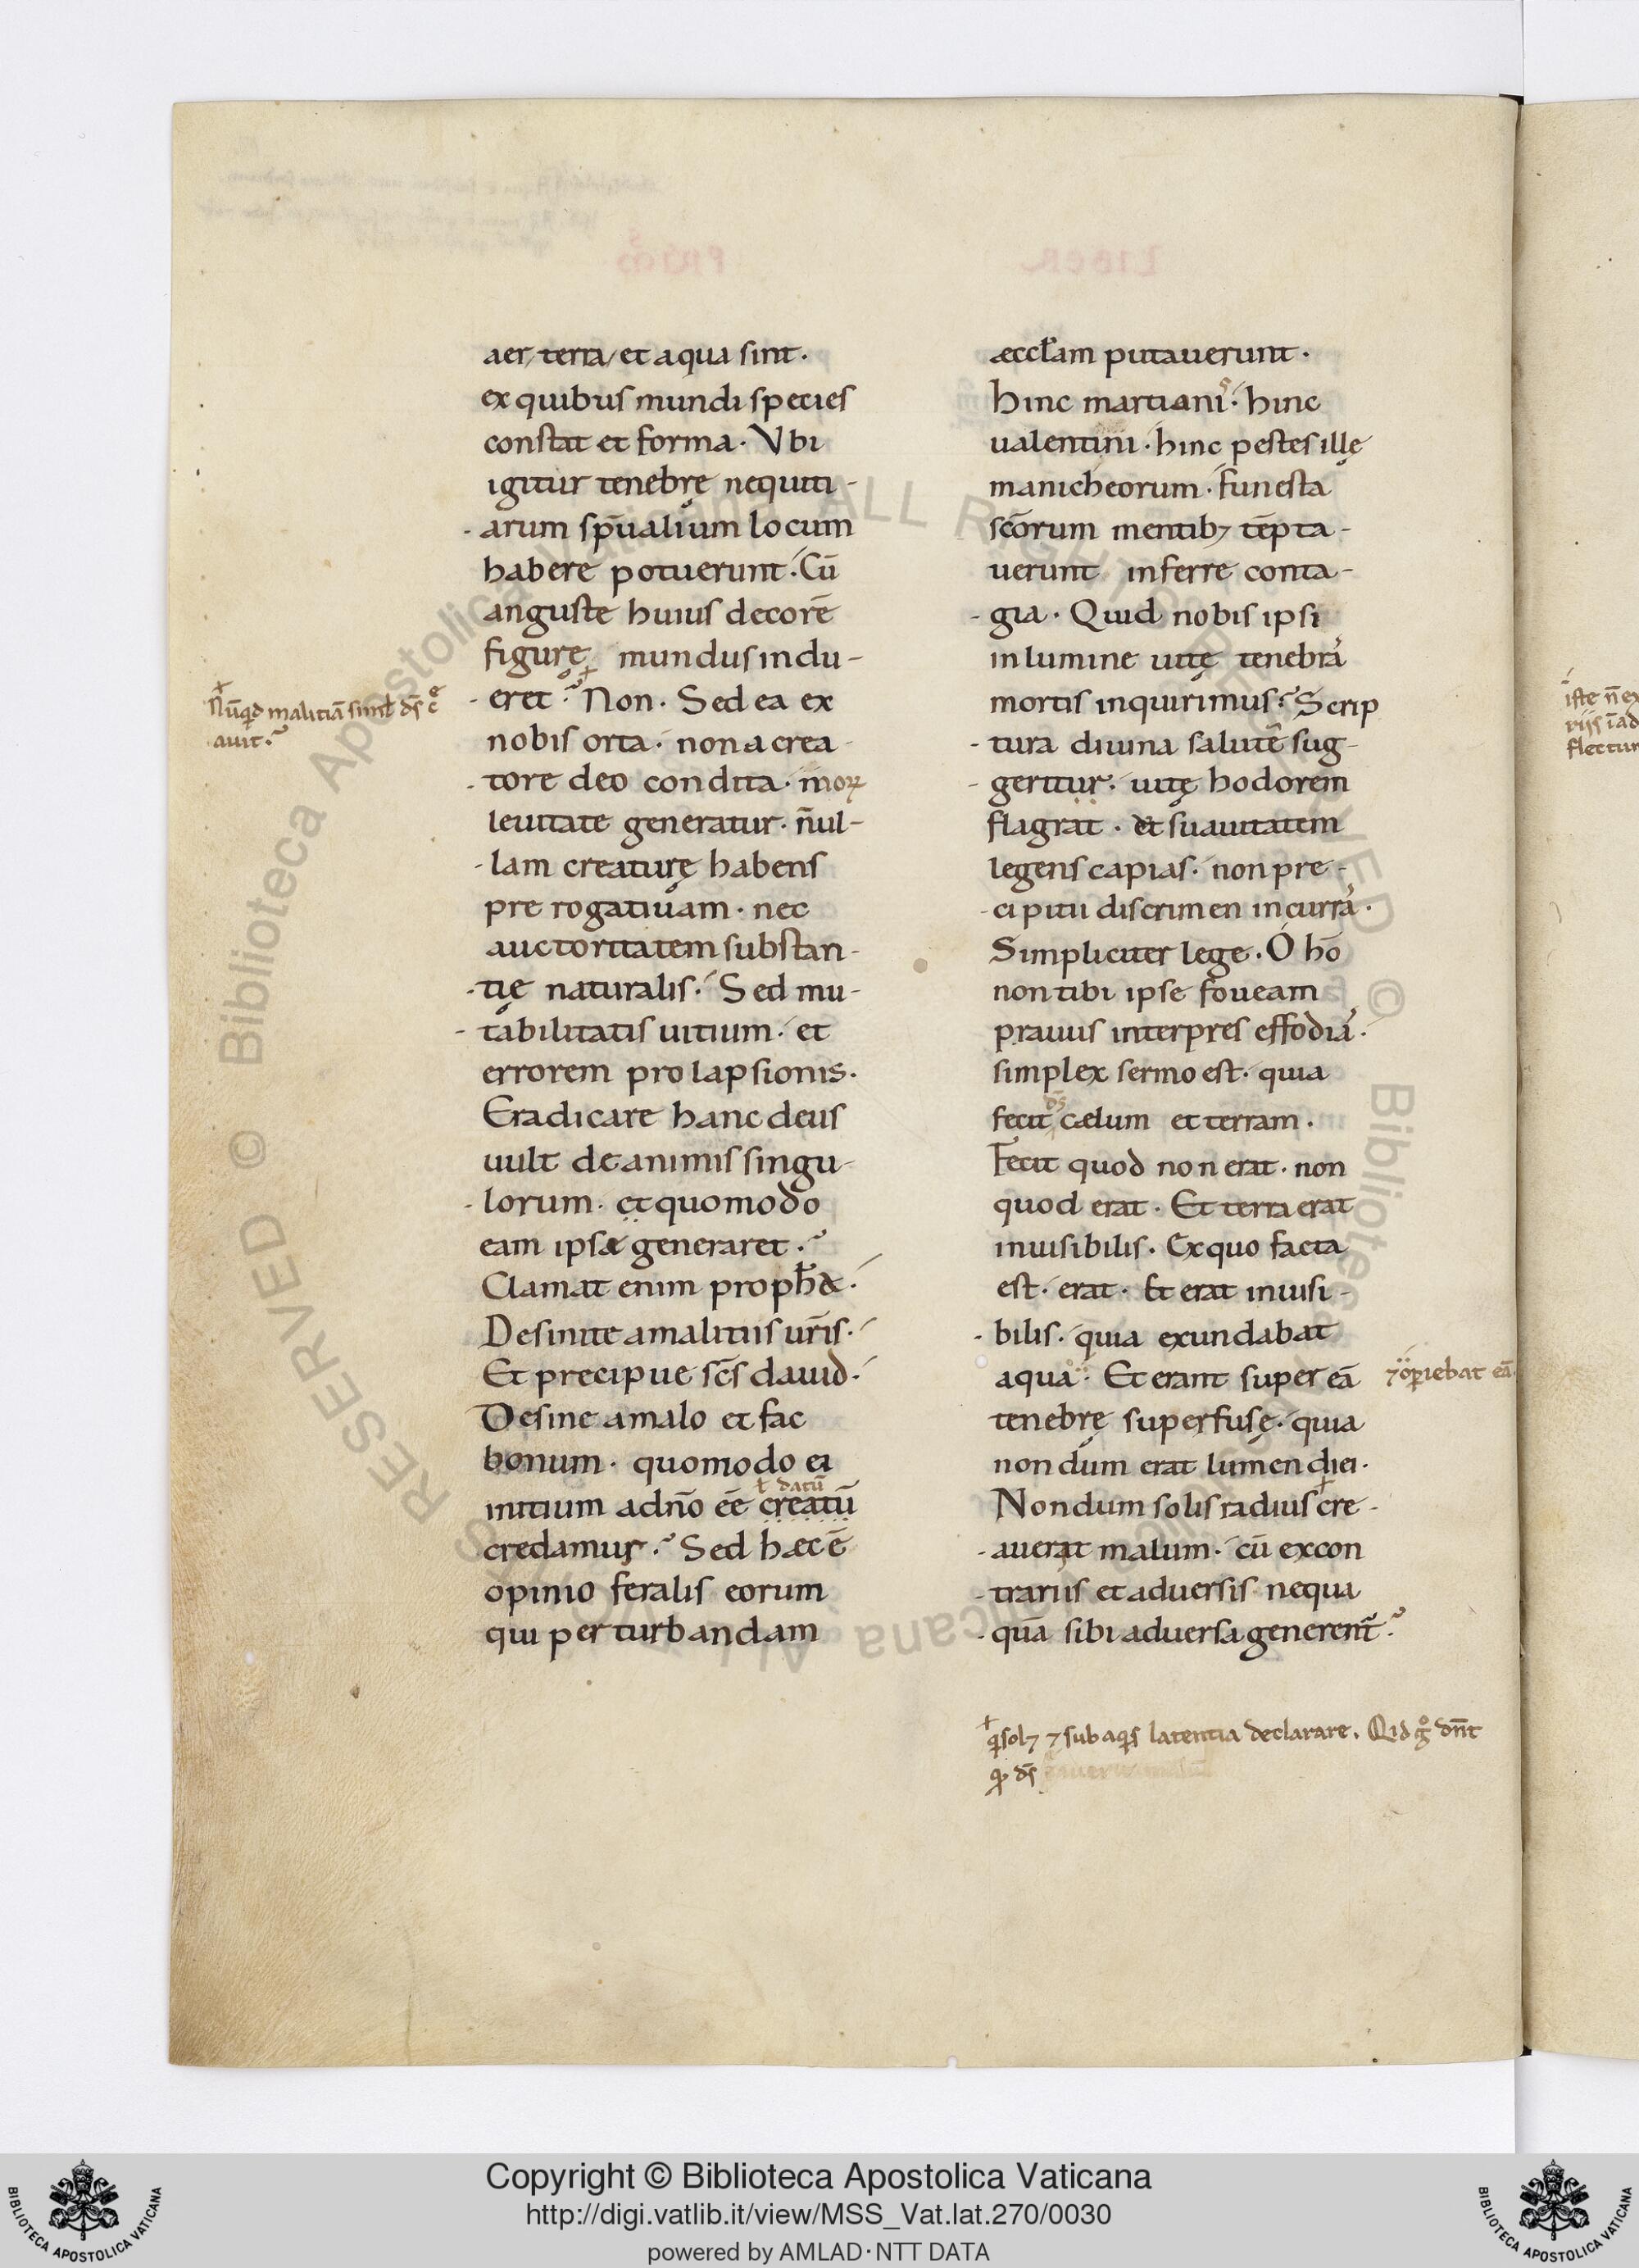 aer, terra, et aqua sint.
ex quibus mundi species
constat et forma. Vbi
igitur tenebrę nequiti-
arum sp̄ualium locum
habere potuerunt. Cū
anguste huius decorē
figurę mundus indu-
eret? Non. Sed ea ex
nobis orta. non a crea-
tore deo condita. moꝝ
leuitate generatur. n̄ul-
lam creaturę habens
prerogatiuam. nec
auctoritatem substan-
tię naturalis. Sed mu-
tabilitatis uitium. et
errorem prolapsionis.
Eradicare hanc deus
uult de animis singu-
lorum. et quomodo
eam ipsæ generaret.?
Clamat enim proph̄&.
Desinite a malitiis ur̄is.
Et precipue sc̄s dauid.
Desine a malo et fac
bonum. quomodo ei
ł datū
initium a dn̄o eē creatū
credamus.? Sed hæc ē
opinio feralis eorum
qui perturbandam
Nūqd malitiā siml ds̄ c̄e
auit.?
æccł̄am putauerunt.
hinc martiani. hinc
ualentini. hinc pestes illę
manicheorum. funesta
sc̄orum mentibꝫ tēpta-
uerunt inferre conta-
gia. Quid nobis ipsi
in lumine uitę tenebra
mortis inquirimus? Scrip
tura diuina salutē sug-
geritur. uitę hodorem
flagrat. et suauitatem
legens capias. non pre-
cipitii discrimen incurra.
Simpliciter lege. O hō
non tibi ipse foueam
prauus interpres effodia.
simplex sermo est. quia
ds̄
fecit cælum et terram.
Fecit quod non erat. non
quod erat. Et terra erat
inuisibilis. Ex quo facta
est. erat. Et erat inuisi-
bilis. quia exundabat
aqua. Et erant super eā
⁊ opiebat eā
tenebrę superfusę. quia
nondum erat lumen diei.
Nondum solis radius cre-
auerat malum. cū ex con
trariis et aduersis nequa
quā sibi aduersa generent̄?
q̄ solꝫ ⁊ sub aqis latentia declarare. Qid g̊ dn̄t
qd ds̄
Copyright © Biblioteca Apostolica Vaticana
http://digi.vatlib.it/view/MSS_Vat.lat.270/0030
powered by AMLAD·NTT DATA
BIBLIOTECA APOSTOLICA VATICANA
BIBLIOTECA APOSTOLICA VATICANA